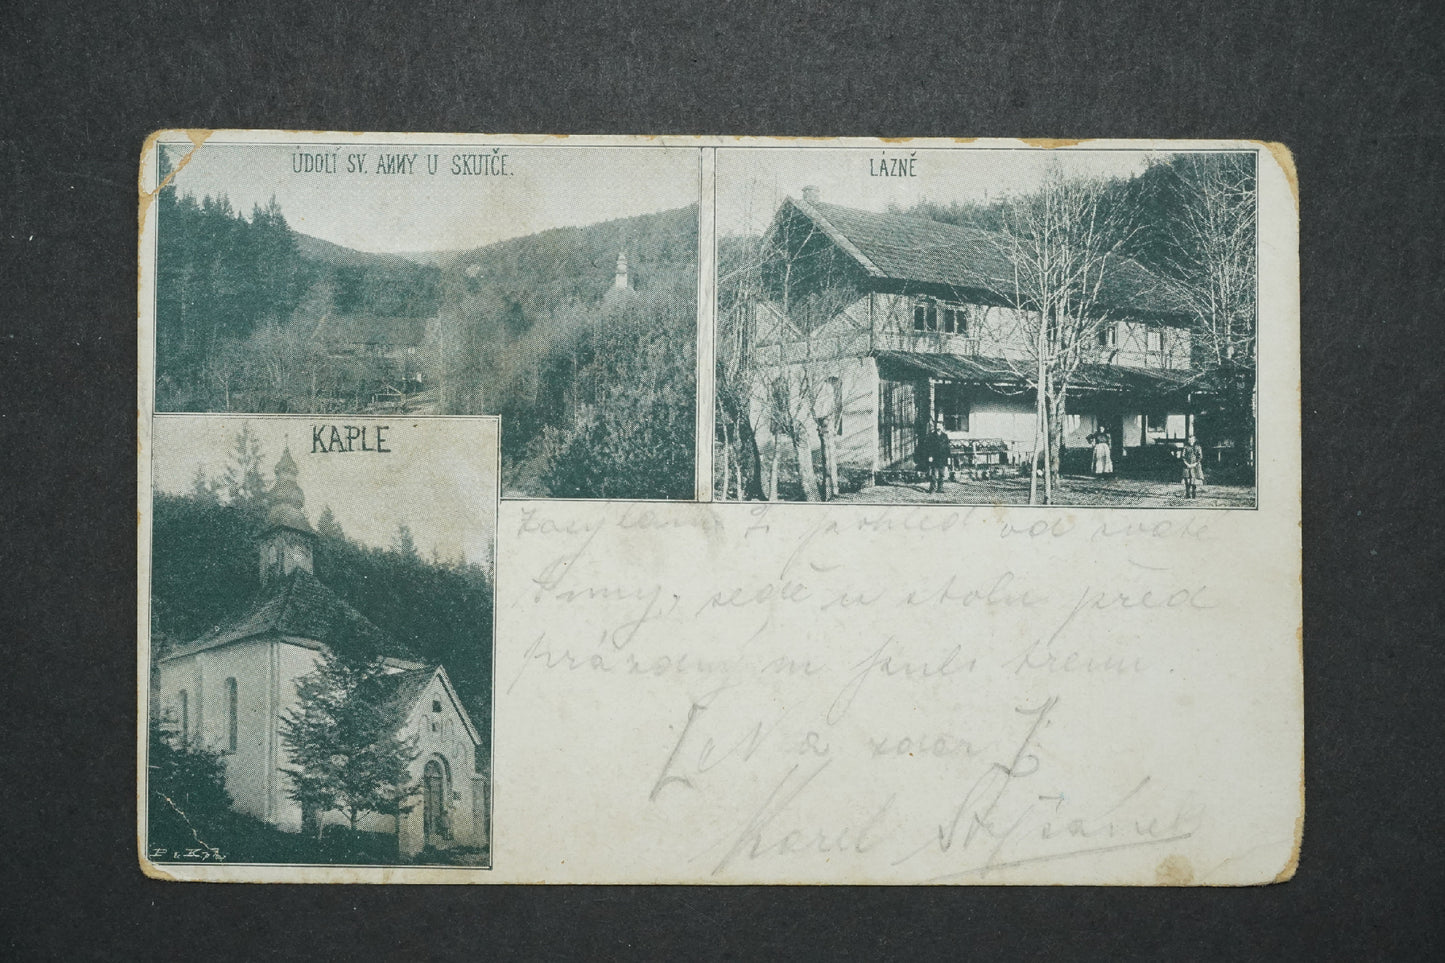 ÚDOLÍ SV. ANNY U SKUTČE.
LÁZNĚ
KAPLE
Zasýlám Z pohled od svaté
Anny, sedě u stolu před
prázdným
[Na zdar]
Karel